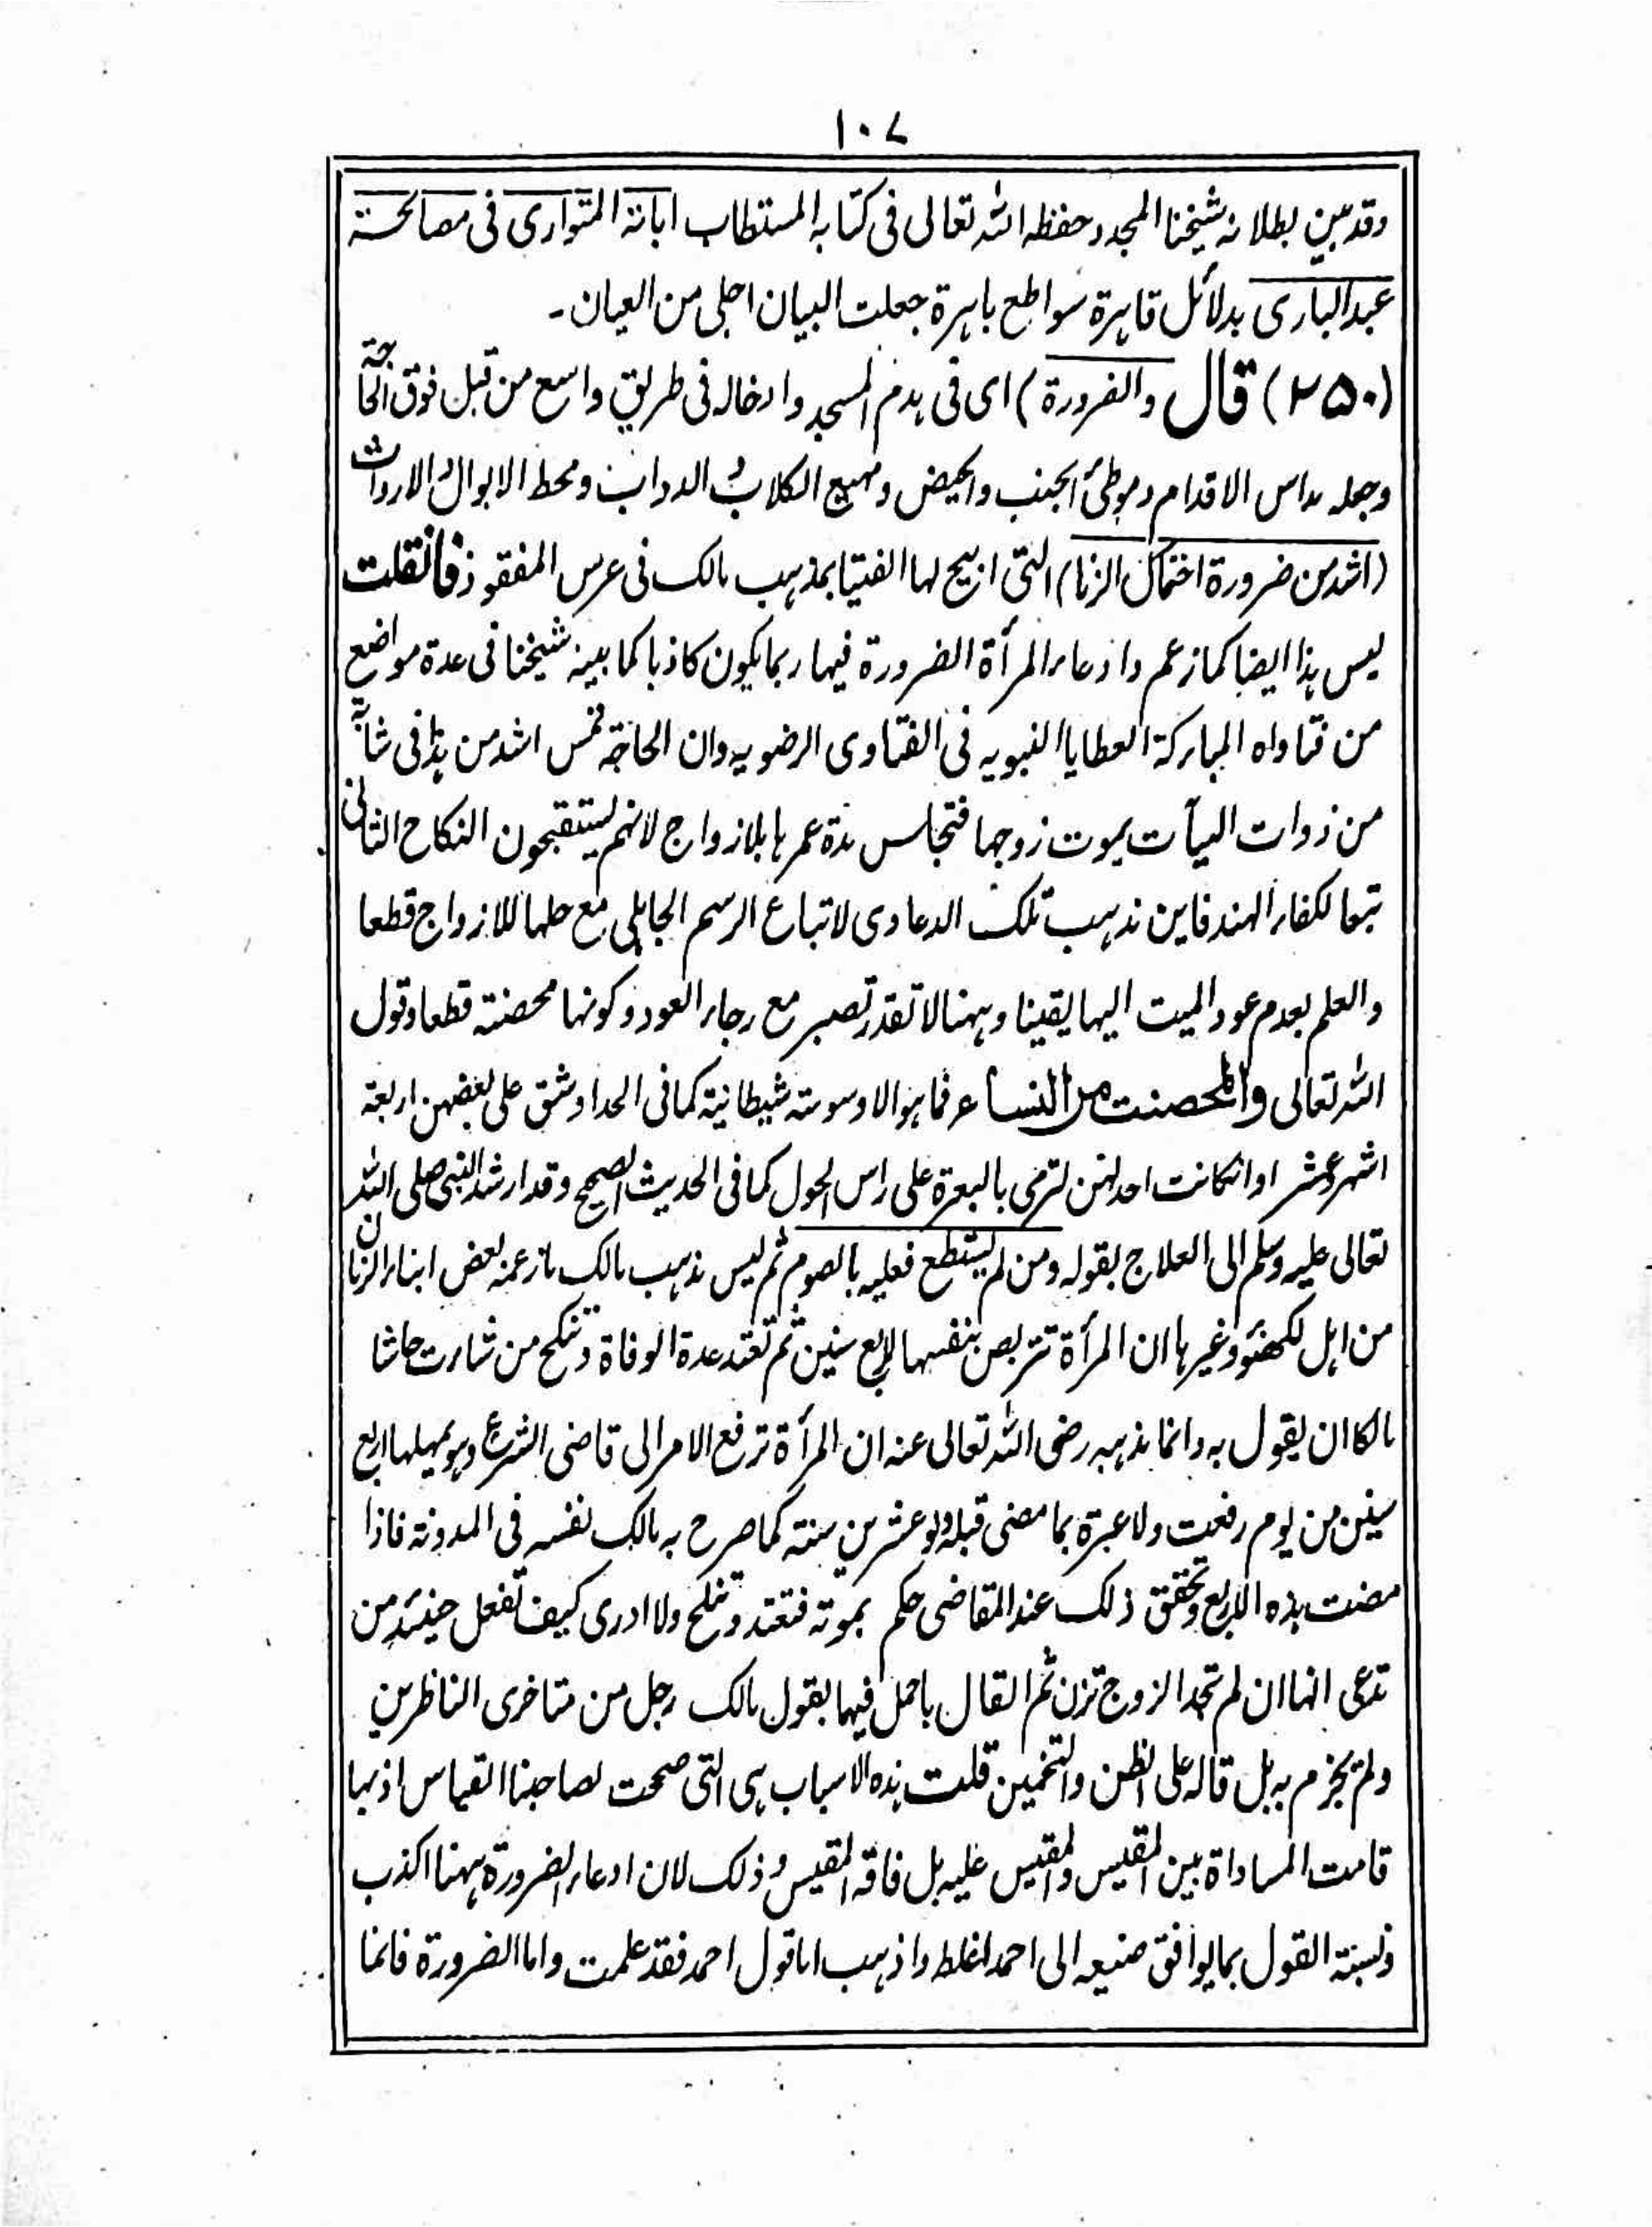 ١٠٧
وقد بين بطلانه شيخنا المجدد حفظه الله تعالى فى كتابه المستطاب ابانة المتوارى فى مصالحة
عبد البارى بدلائل قاهرة سواطع باهرة جعلت البيان اجلى من العيان۔
(٢٥٠) قال والضرورة) اى فى هدم المسجد وادخاله فى طريق واسع من قبل فوق الحاجة
وجعله مداس الاقدام وموطئ الجنب والحيض ومهيع الكلاب والدواب ومحط الابوال والارواث
(اشد من ضرورة احتمال الزنا) التى ابيح لها الفتيا بمذهب مالك فى عرس المفقود فانقلت
ليس هذا ايضا كما زعم وادعاء المرأة الضرورة فيها ربما يكون كاذبا كما بينه شيخنا فى عدة مواضع
من فتاواه المباركة العطايا النبويه فى الفتاوى الرضويه وان الحاجة تمس اشد من هذا فى شابة
من ذوات البيآت يموت زوجها فتجلس مدة عمرها بلا زواج لانهم يستقبحون النكاح الثانى
تبعا لكفار الهند فاين تذهب تلك الدعاوى لاتباع الرسم الجاهلى مع حلها للازواج قطعا
والعلم بعدم عود الميت اليها يقينا وههنا لا تقدر تصبر مع رجاء العود وكونها محصنة قطعا وقول
الله تعالى والمحصنت من النساء فما هو الا وسوسة شيطانية كما فى الحداد شق على بعضهن اربعة
اشهر وعشر او انكانت احدٰهن لترمى بالبعرة على راس الحول كما فى الحديث الصحيح وقد ارشد النبى صلى الله
تعالى عليه وسلم الى العلاج بقوله ومن لم يستطع فعليه بالصوم ثم ليس مذهب مالك ما زعمه بعض ابناء الزمان
من اهل لكهنؤ وغيرها ان المرأة تتربص بنفسها اربع سنين ثم تعتد عدة الوفاة وتنكح من شاءت حاشا
مالكا ان يقول به وانما مذهبه رضى الله تعالى عنه ان المرأة ترفع الامر الى قاضى الشرع وهو يمهلها اربع
سنين من يوم رفعت ولا عبرة بما مضى قبله ولو عشرين سنة كما صرح به مالك نفسه فى المدونة فاذا
مضت هذه الاربع وتحقق ذلك عند القاضى حكم بموته فتعتد وتنكح ولا ادرى كيف تفعل حينئذ من
تدعى انها ان لم تجد الزوج تزن ثم القال باحمل فيها بقول مالك رجل من متاخرى الناظرين
ولم يجزم به بل قاله على الظن والتخمين قلت هذه الاسباب هى التى صحت لصاحبنا القياس اذ بها
قامت المساواة بين المقيس والمقيس عليه بل فاقه المقيس وذلك لان ادعاء الضرورة ههنا اكذب
ونسبة القول بما يوافق صنيعه الى احمد اغلط واذهب اما قول احمد فقد علمت واما الضرورة فانما